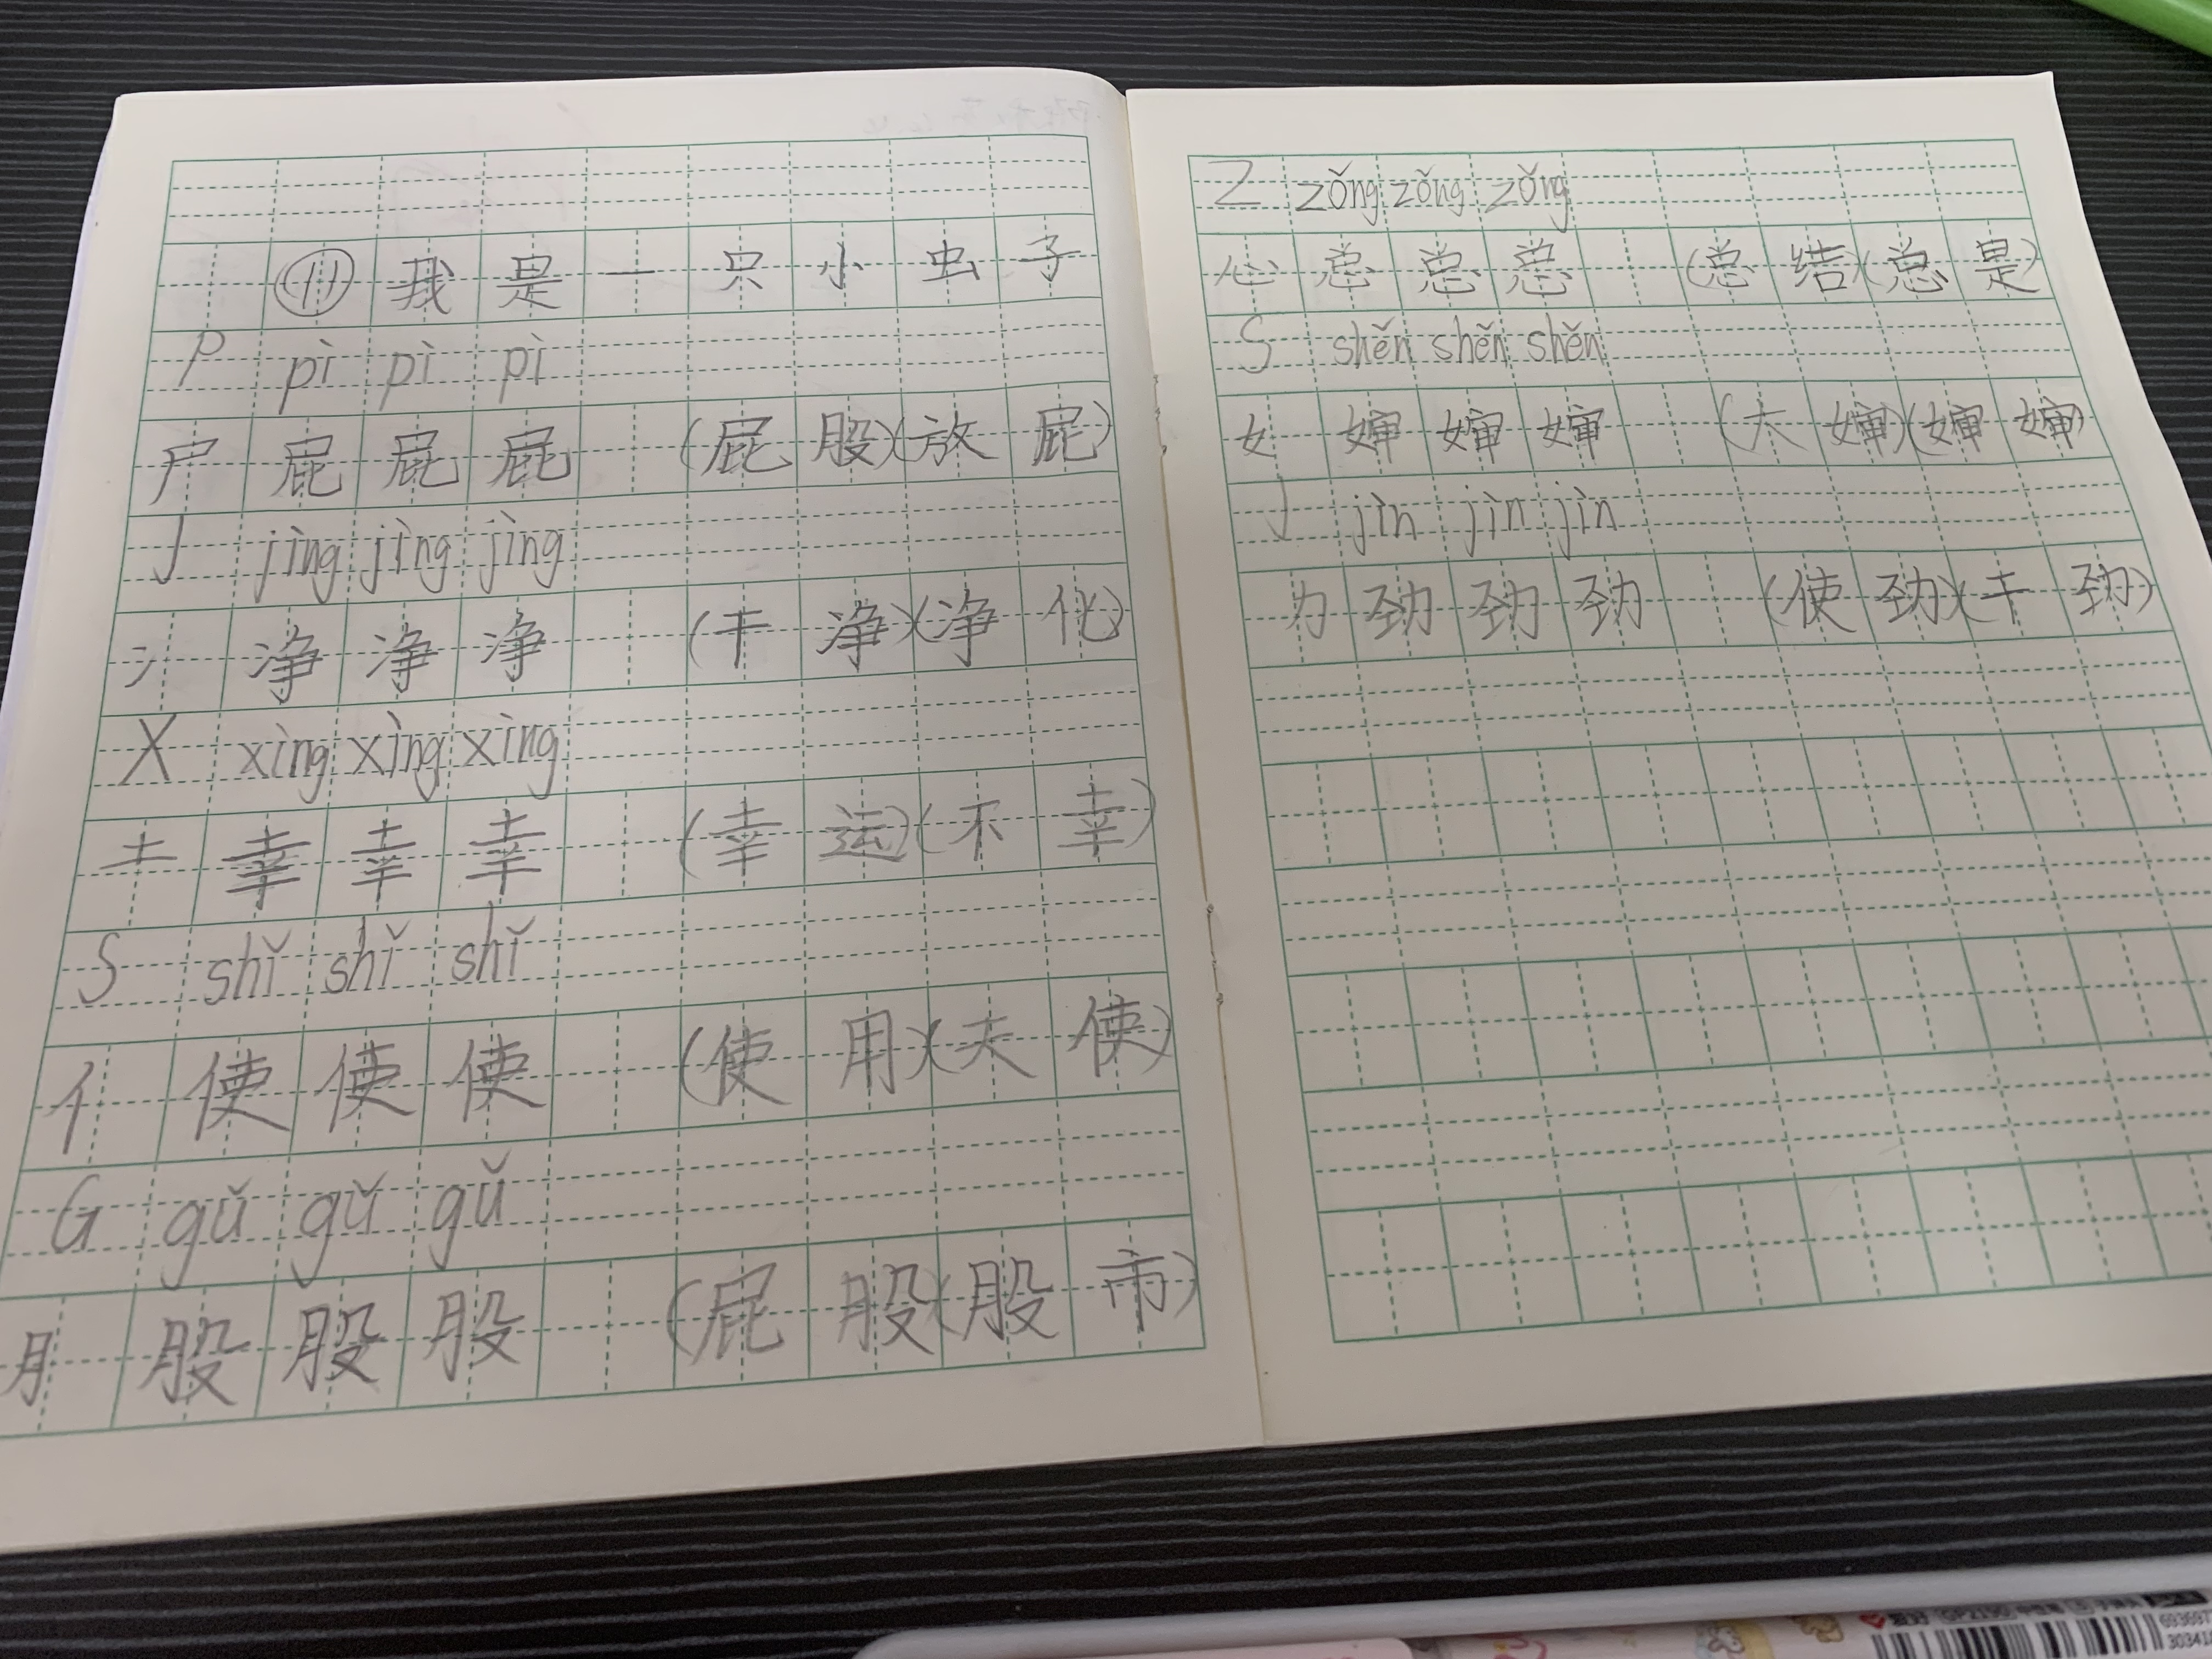 ⑪ 我是一只小虫子
P pì pì pì
尸 屁 屁 屁 (屁股)(放屁)
J jìng jìng jìng
冫 净 净 净 (干净)(净化)
X xìng xìng xìng
土 幸 幸 幸 (幸运)(不幸)
S shǐ shǐ shǐ
亻 使 使 使 (使用)(天使)
G gǔ gǔ gǔ
月 股 股 股 (屁股)(股市)
Z zǒng zǒng zǒng
心 总 总 总 (总结)(总是)
S shěn shěn shěn
女 婶 婶 婶 (大婶)(婶婶)
J jìn jìn jìn
力 劲 劲 劲 (使劲)(干劲)